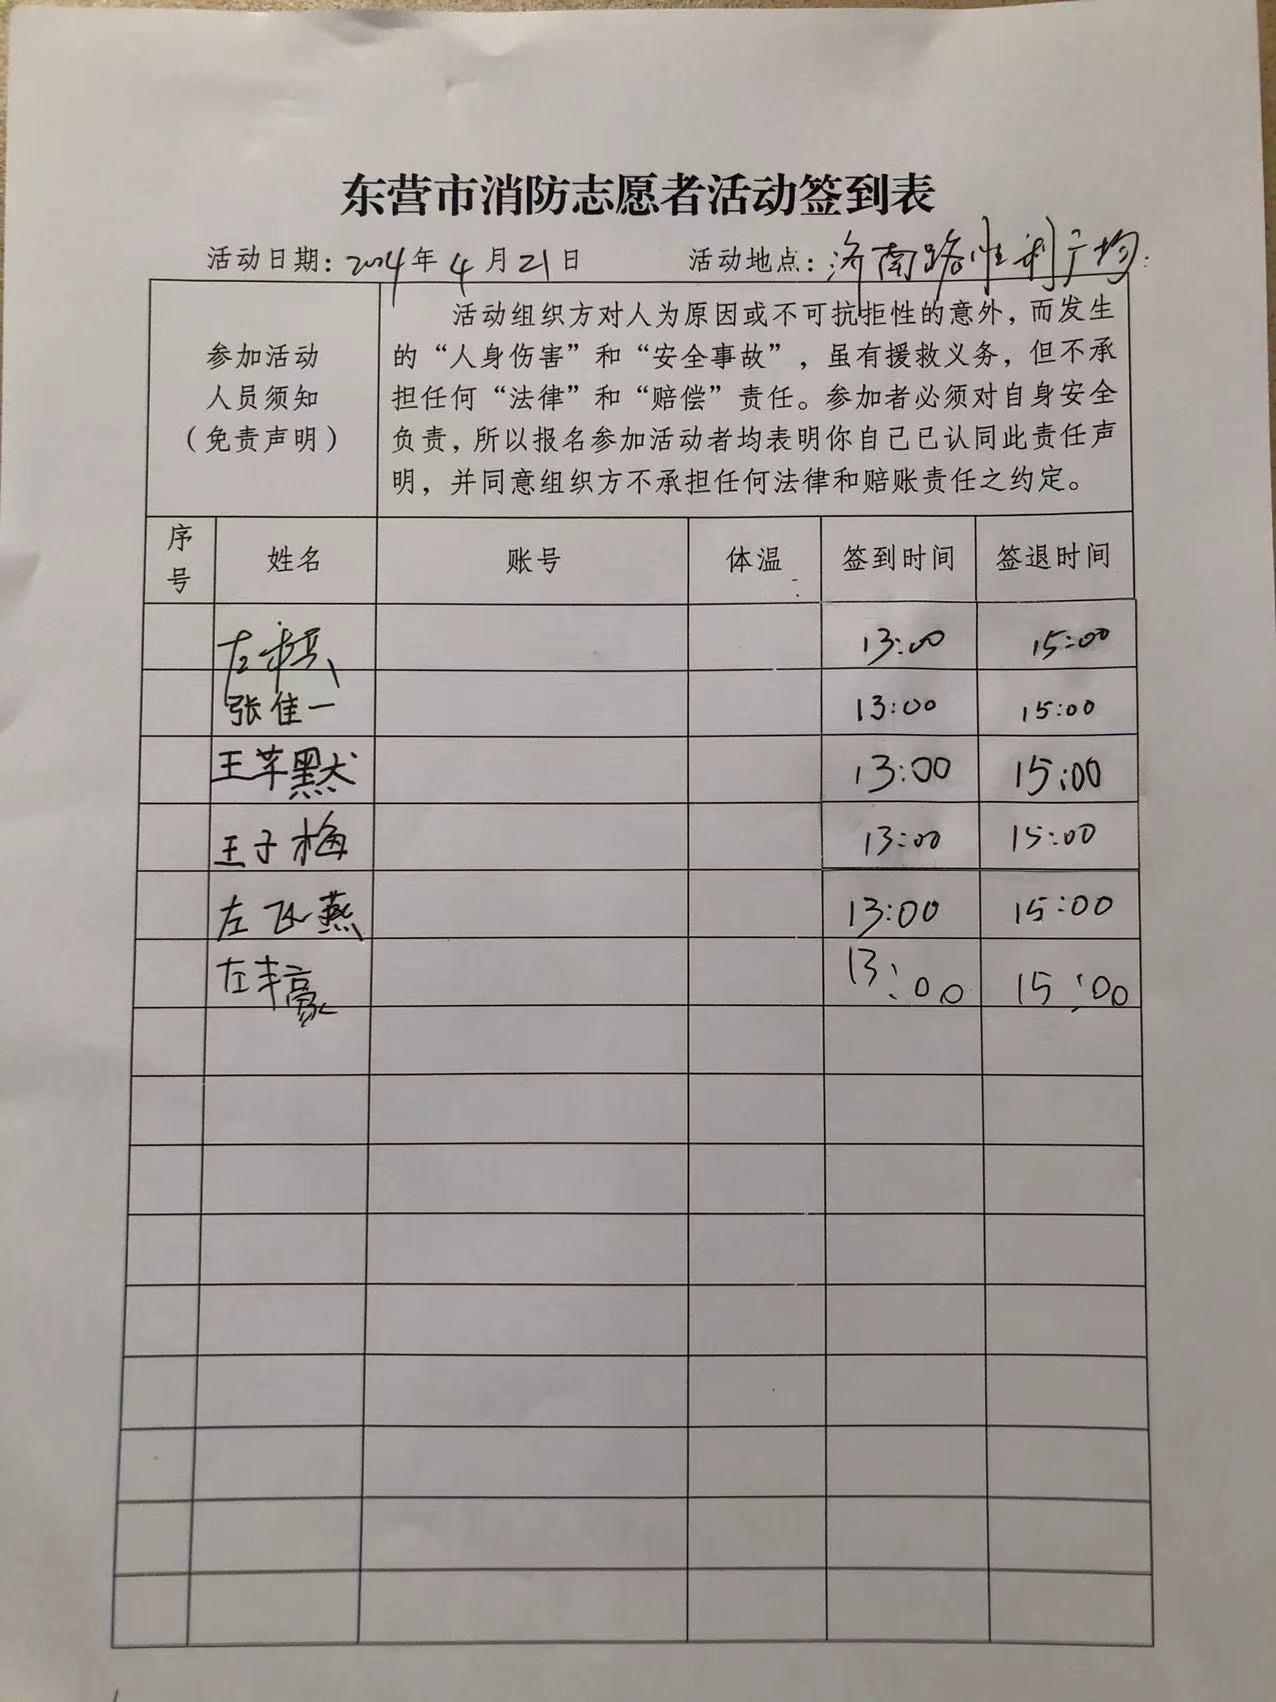 东营市消防志愿者活动签到表
活动日期：2024年4月21日 活动地点：济南路胜利广场
参加活动
人员须知
（免责声明）
活动组织方对人为原因或不可抗拒性的意外，而发生
的“人身伤害”和“安全事故”，虽有援救义务，但不承
担任何“法律”和“赔偿”责任。参加者必须对自身安全
负责，所以报名参加活动者均表明你自己已认同此责任声
明，并同意组织方不承担任何法律和赔账责任之约定。
序号 姓名 账号 体温 签到时间 签退时间
左 13:00 15:00
张佳一 13:00 15:00
王苹默 13:00 15:00
王子梅 13:00 15:00
左飞燕 13:00 15:00
左丰豪 13:00 15:00